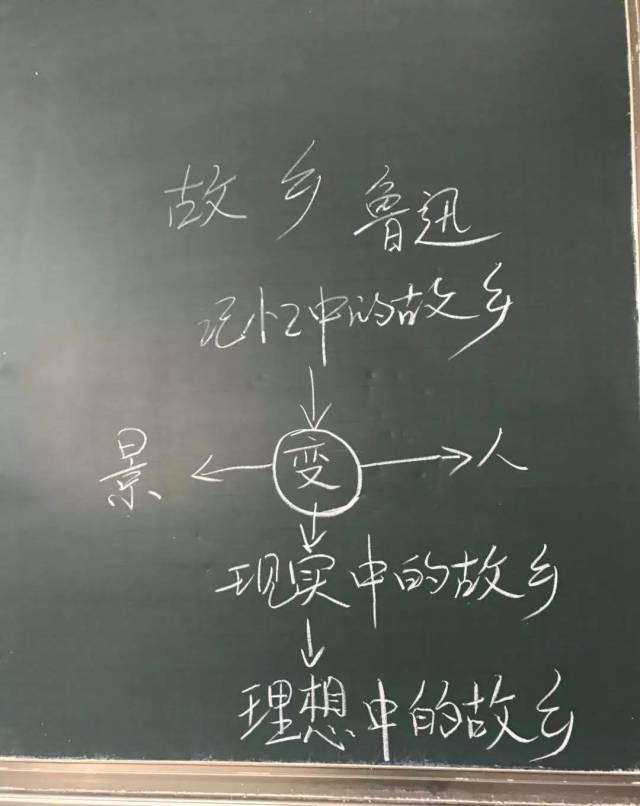 故乡 鲁迅
记忆中的故乡
景 变 人
现实中的故乡
理想中的故乡